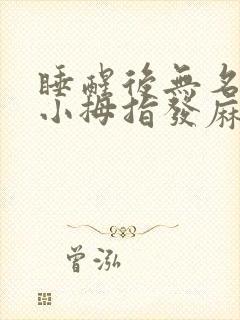 睡醒後無名
小拇指發麻
曾泓